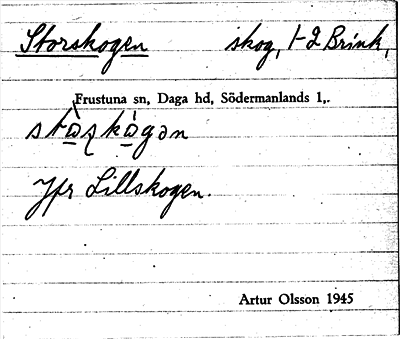 Storskogen skog, 1-2 Brink,
Frustuna sn, Daga hd, Södermanlands l.,
Jfr Lillskogen.
Artur Olsson 1945